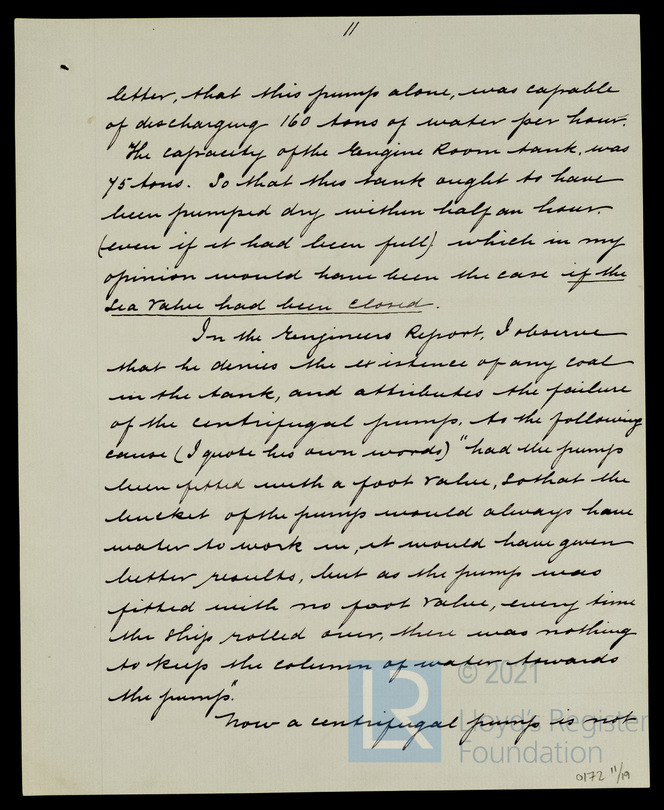 11
letter, that this pump alone, was capable
of discharging 160 tons of water per hour.
The capacity of the Engine Room tank, was
75 tons. So that this tank ought to have
been pumped dry within half an hour.
(even if it had been full) which in my
opinion would have been the case if the
Sea Valve had been closed.
In the Engineers Report, I observe
that he denies the existence of any coal
in the tank, and attributes the failure
of the centrifugal pump, to the following
cause (I quote his own words) "had the pump
been fitted with a foot valve, so that the
bucket of the pump would always have
water to work in, it would have given
better results, but as the pump was
fitted with no foot valve, every time
the ship rolled over, there was nothing
to keep the column of water towards
the pump".
Now a centrifugal pump is not
© 2021
Lloyd's Register
Foundation
0172 11/19